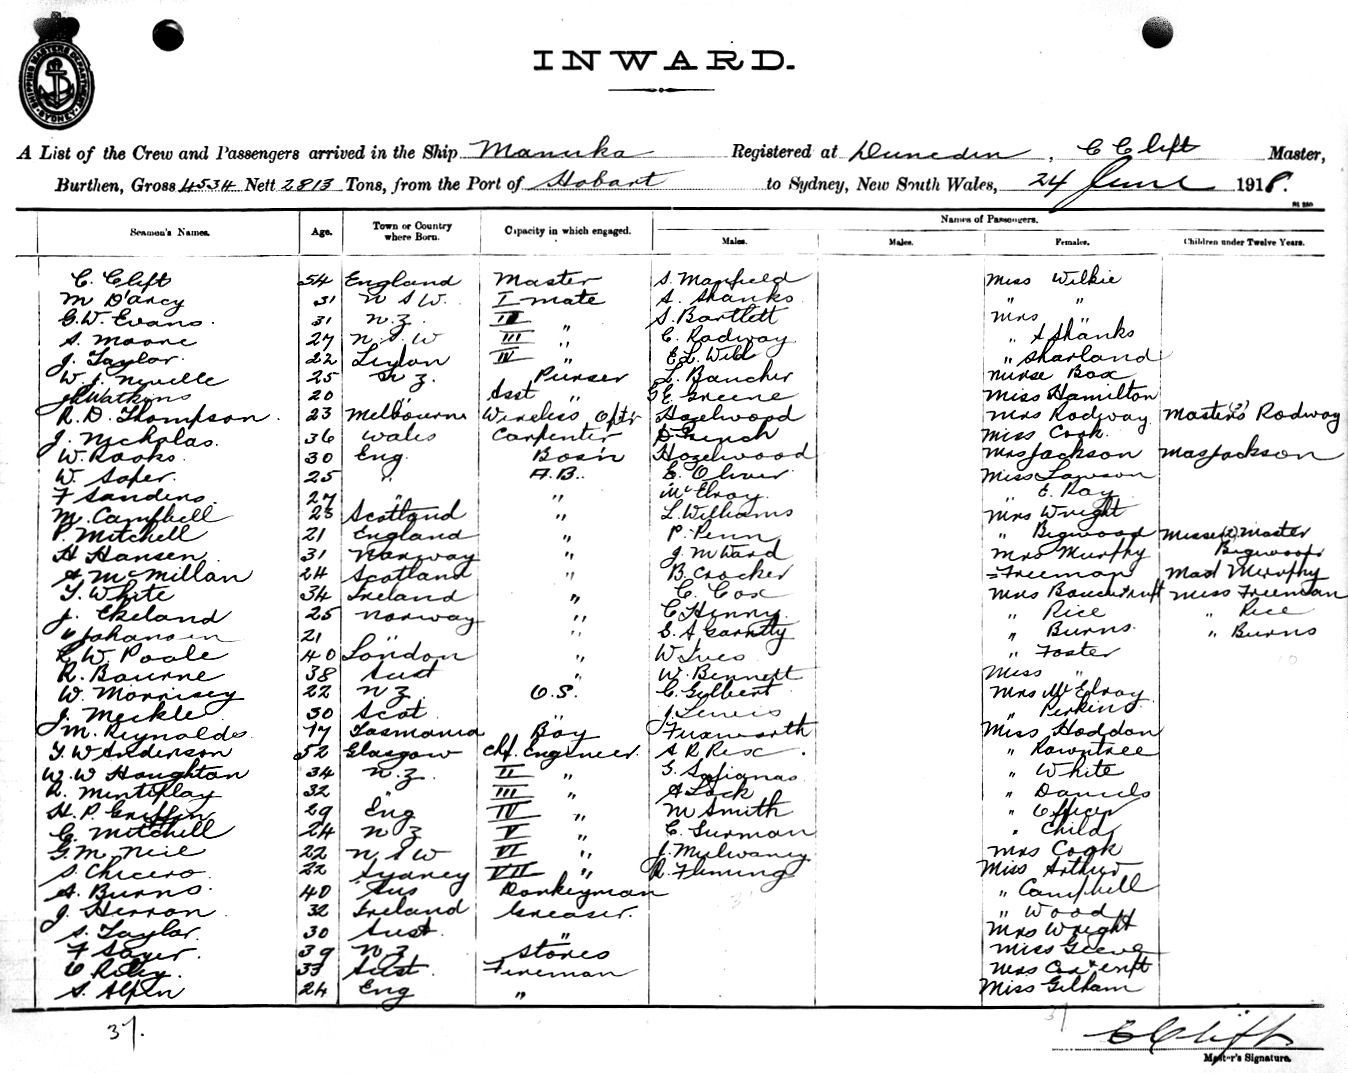 SHIPPING MASTER'S DEPARTMENT SYDNEY
INWARD.
A List of the Crew and Passengers arrived in the Ship Manuka Registered at Dunedin, C Clift Master,
Burthen, Gross 4534 Nett 2813 Tons, from the Port of Hobart to Sydney, New South Wales, 24 June 1918.
Names of Passengers.
Seamen's Names. Age. Town or Country where Born. Capacity in which engaged. Males. Males. Females. Children under Twelve Years.
C. Clift 54 England Master S. Maxfield Miss Wilkie
M D'arcy 31 N S W. I mate A. Shanks " "
G.W. Evans. 31 N.Z. II " S. Bartlett Mrs "
S. Moore 27 N. S. W III " C. Radway. " A Shanks
J. Taylor. 22 IV " E L. Wild " Sharland
W. J. Neville 25 N Z. Purser L. Baucher Nurse Box
J Watkins 20 " Asst " G E. Greene Miss Hamilton
R. D. Thompson. 23 Melbourne Wireless Optr Hazelwood Mrs Rodway Masters (2) Rodway
J. Nicholas. 36 Wales Carpenter Miss Cook.
W. Rooks. 30 Eng. Bosin Hazelwood Mrs Jackson Mas Jackson
W. Soper. 25 " A.B. E. Oliver Miss Lawson
F Sanders. 27 " " McElroy. " E. Ray
M. Campbell 23 Scotland " L. Williams Mrs Wright
P. Mitchell 21 England " P. Penn " Bigwood Misses (2) Master Bigwood
H Hansen 31 Norway " J. M Ward Mrs Murphy
A McMillan 24 Scotland " B. Crocker = Freeman Mast Murphy
T. White 34 Ireland " C. Cox Mrs Miss Freeman
J. Ekeland 25 Norway " C Henny. " Rice " Rice
Johansen 21 " " S. A Garntly " Burns. " Burns
R W. Poole 40 London " W Ives " Foster
R. Bourne 38 Aust " W. Bennett Miss "
W. Morrisey 22 N Z. O.S. C. Gilbert Mrs McElroy
J. Meikle 30 Scot. " J. Lewis " Perkins.
M. Reynolds. 17 Tasmania Boy Furworth Miss Hoddon
T. W Anderson 52 Glasgow Chf. Engineer. A R Rex. " Rowntree
W. W Houghton 34 N.Z. II " G. Sofianos " White
R. Mintiplay 32 " III " A Lock " Daniels
H. P. Griffin 29 Eng IV " M Smith " Officer
G. Mitchell 24 N Z V " C. Surman " Child
G. M. Neil 22 N S W VI " J. Mulwaney Mrs Cook
S. Chicero. 22 Sydney VII " R. Fleming Miss Arthur
A. Burns. 40 Aus Donkeyman " Campbell
J. Herron 32 Ireland Greaser. " Wood
S. Taylor. 30 Aust. " Mrs Wright
F Sayer. 39 N Z Stores Miss Geeve
C Riley. 33 Aust. Fireman Mrs
S. Alpin 24 Eng " Miss Gilham
37.
37
C Clift
Master's Signature.